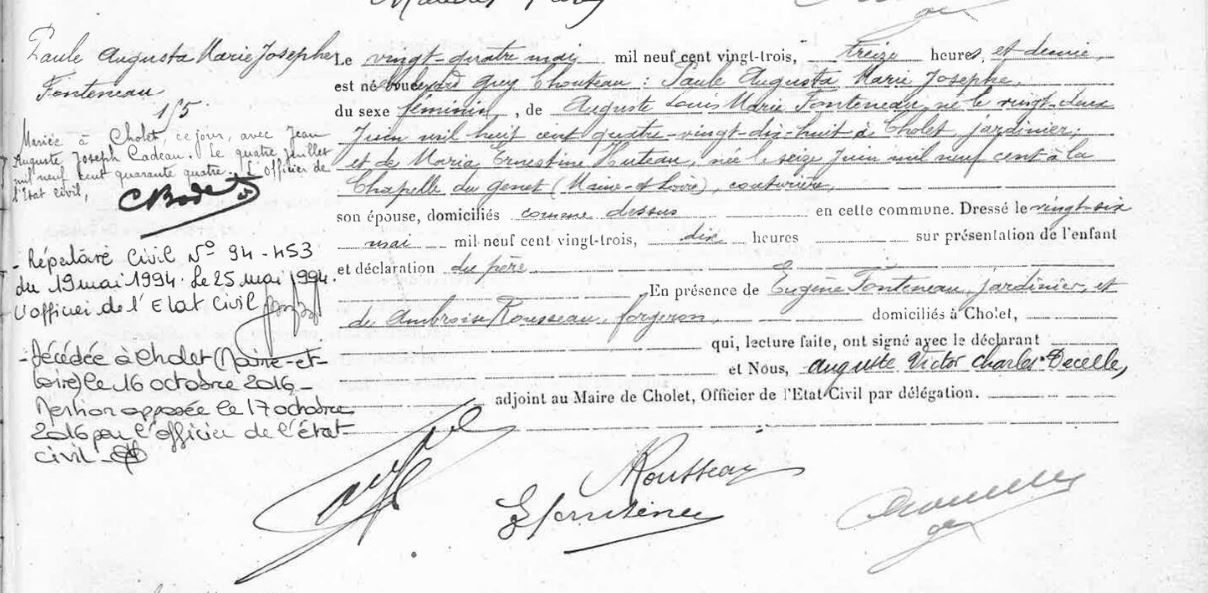 Paule Augusta Marie Josephe
Fonteneau
1/5
Mariée à Cholet, ce jour, avec Jean
Auguste Joseph Cadeau. Le quatre juillet
mil neuf cent quarante quatre. L'officier de
l'Etat civil,
- Répertoire Civil N° 94-453
du 19 mai 1994. Le 25 mai 1994.
L'officier de l'Etat Civil
- Décédée à Cholet (Maine-et-
Loire) le 16 octobre 2016 -
Mention apposée le 17 octobre
2016 par l'officier de l'état
civil -
Le vingt-quatre mai mil neuf cent vingt-trois, treize heures, et demie
est né boulevard Guy Chouteau : Paule Augusta Marie Josephe,
du sexe féminin, de Auguste Louis Marie Fonteneau, né le vingt-deux
Juin mil huit cent quatre-vingt-dix-huit à Cholet, jardinier,
et de Maria Ernestine Huteau, née le seize Juin mil neuf cent à la
Chapelle du genet (Maine-et-Loire), couturière,
son épouse, domiciliés comme dessus en cette commune. Dressé le vingt-six
mai mil neuf cent vingt-trois, dix heures sur présentation de l'enfant
et déclaration du père
En présence de Eugène Fonteneau, jardinier, et
de Ambroise Rousseau, forgeron, domiciliés à Cholet,
qui, lecture faite, ont signé avec le déclarant
et Nous, Auguste Victor Charles Decelle,
adjoint au Maire de Cholet, Officier de l'Etat Civil par délégation.
Rousseau